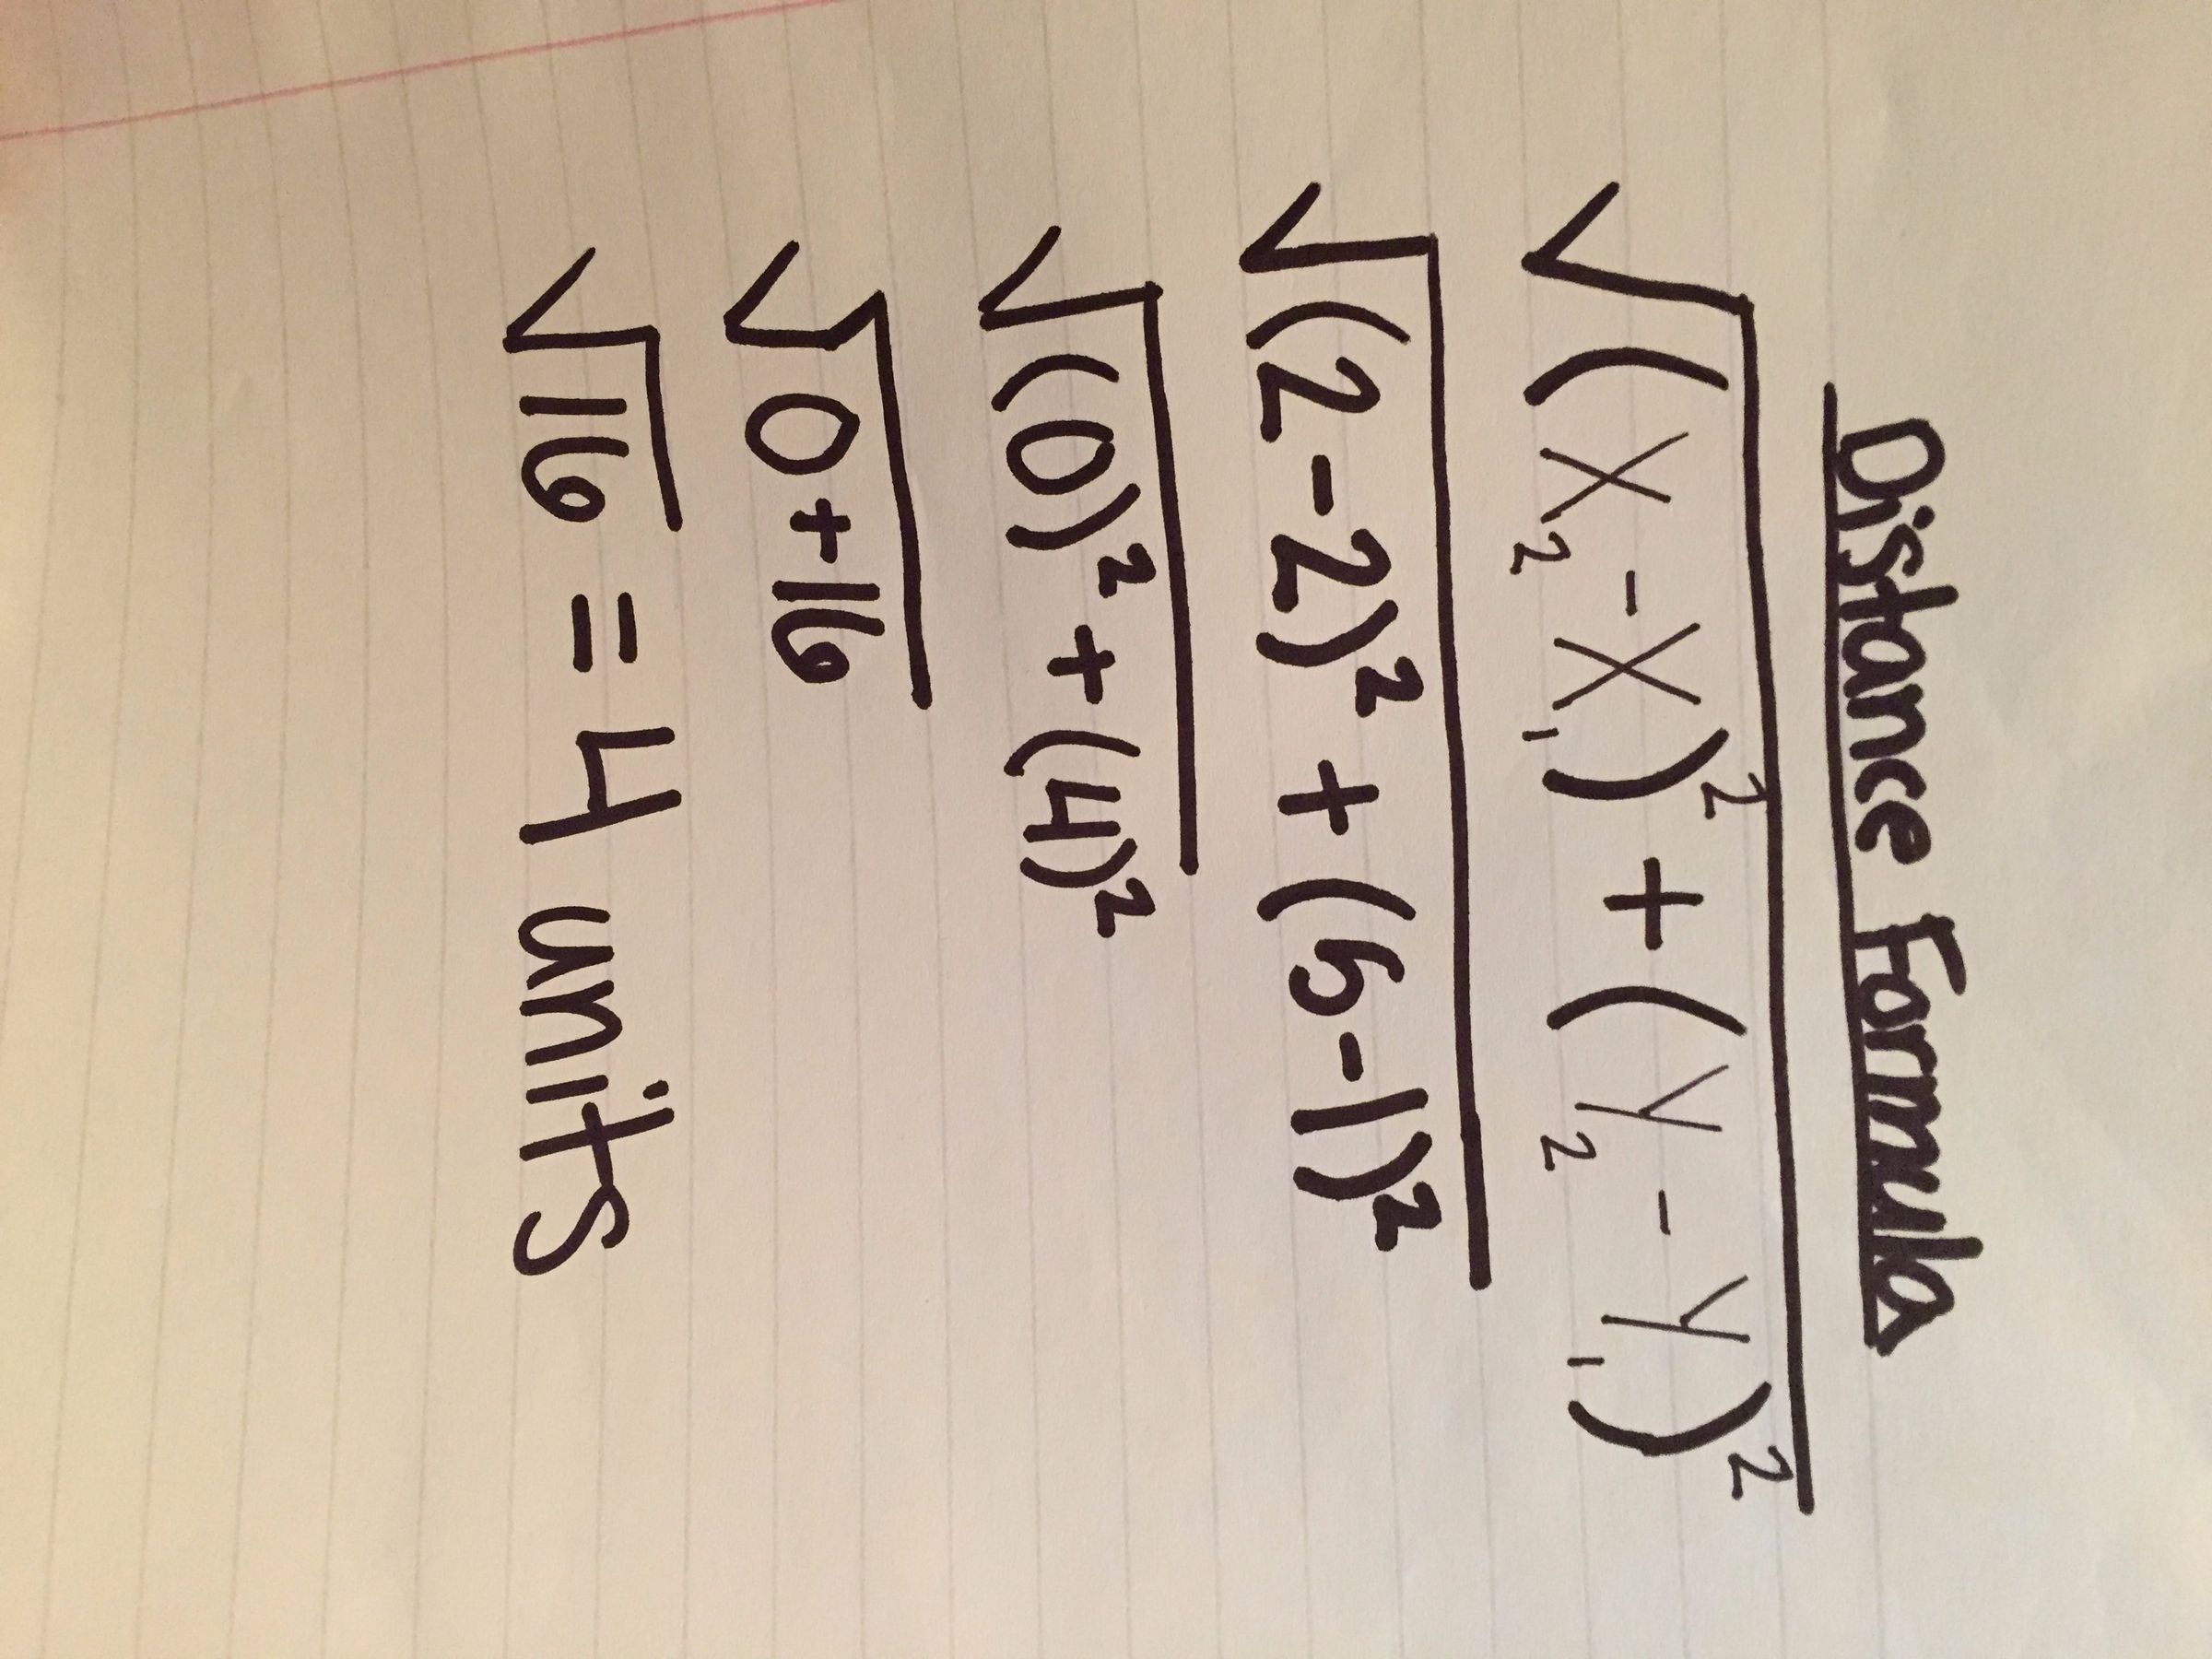 Distance Formula
√(x₂-x₁)² + (y₂-y₁)²
√(2-2)² + (5-1)²
√(0)² + (4)²
√0+16
√16 = 4 units